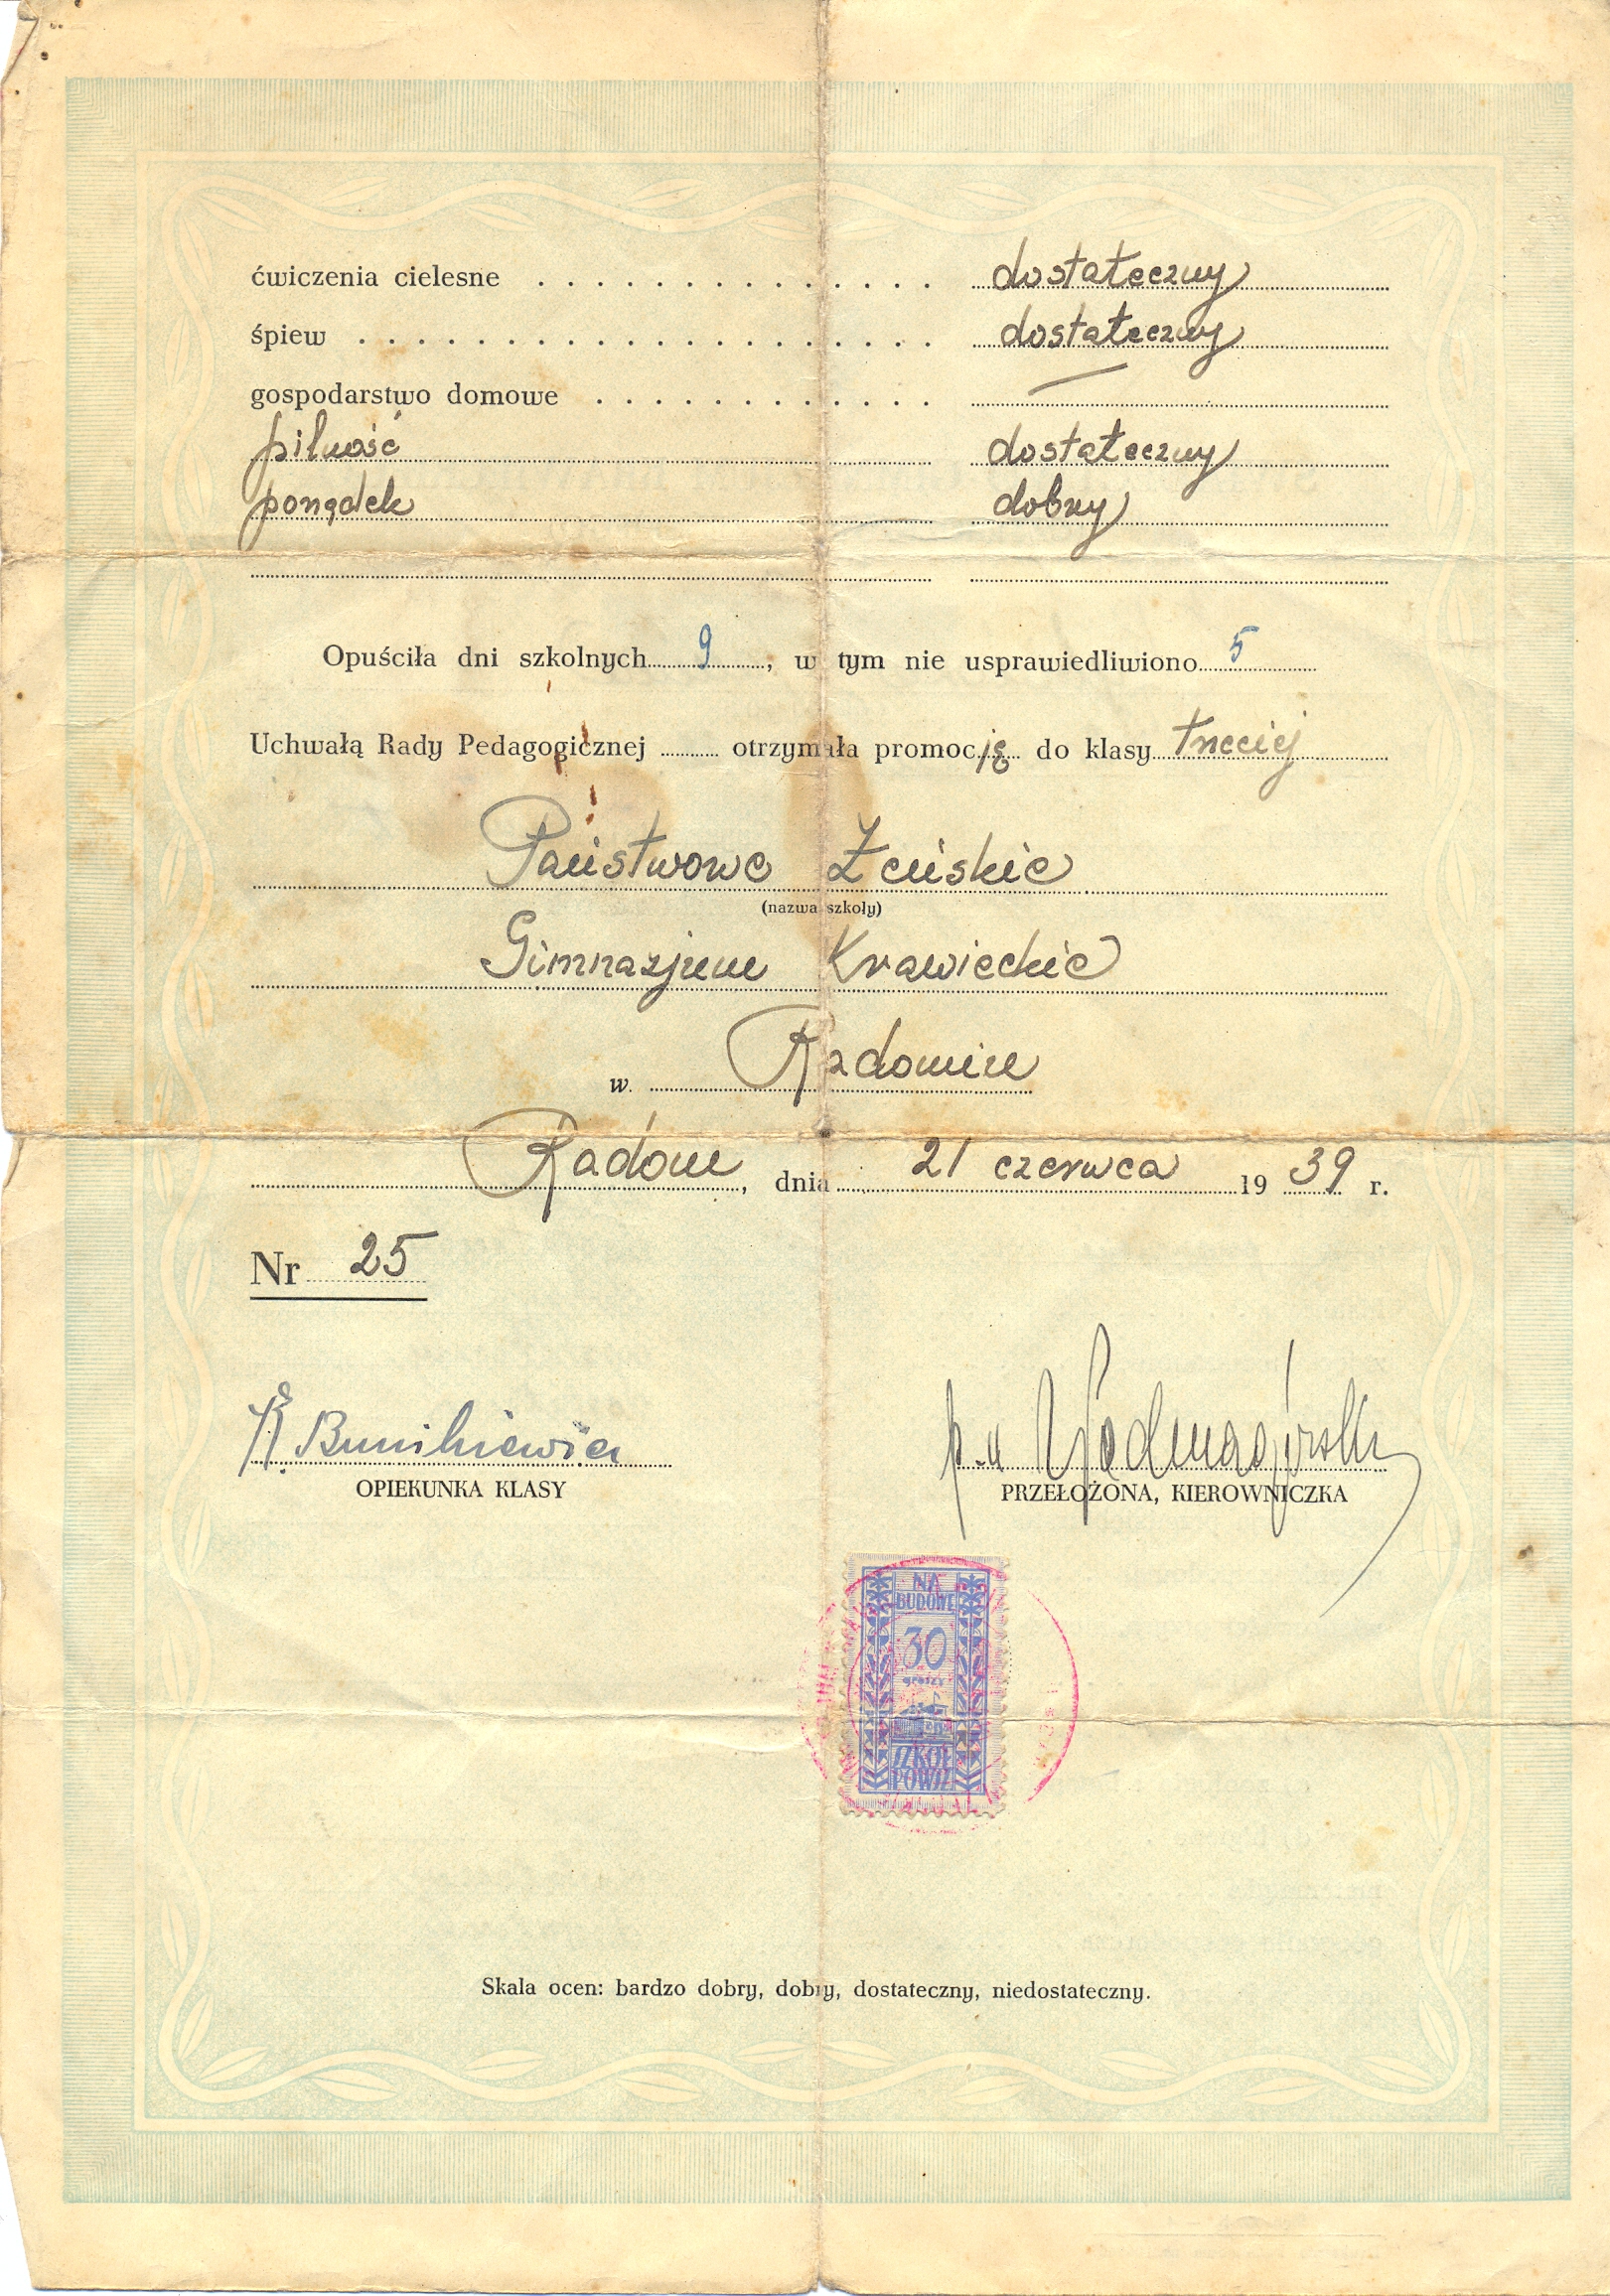 ćwiczenia cielesne . . . . . . . . . . . . . . dostateczny
śpiew . . . . . . . . . . . . . . . . . . . . dostateczny
gospodarstwo domowe . . . . . . . . . . . . —
pilność dostateczny
porządek dobry
Opuściła dni szkolnych 9, w tym nie usprawiedliwiono 5
Uchwałą Rady Pedagogicznej otrzymała promocję do klasy trzeciej
Państwowe Żeńskie
(nazwa szkoły)
Gimnazjum Krawieckie
w Radomiu
Radom, dnia 21 czerwca 1939 r.
Nr 25
OPIEKUNKA KLASY PRZEŁOŻONA, KIEROWNICZKA
NA
BUDOWĘ
30
groszy
SZKÓŁ
POWSZ
Skala ocen: bardzo dobry, dobry, dostateczny, niedostateczny.